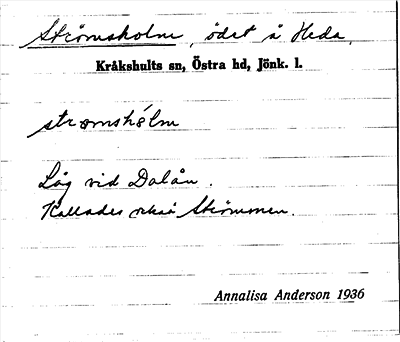 Strömsholm, ödet å Heda.
Kråkshults sn, Östra hd, Jönk. l.
strømshólm
Låg vid Dalån.
Kallades också Strömmen.
Annalisa Anderson 1936